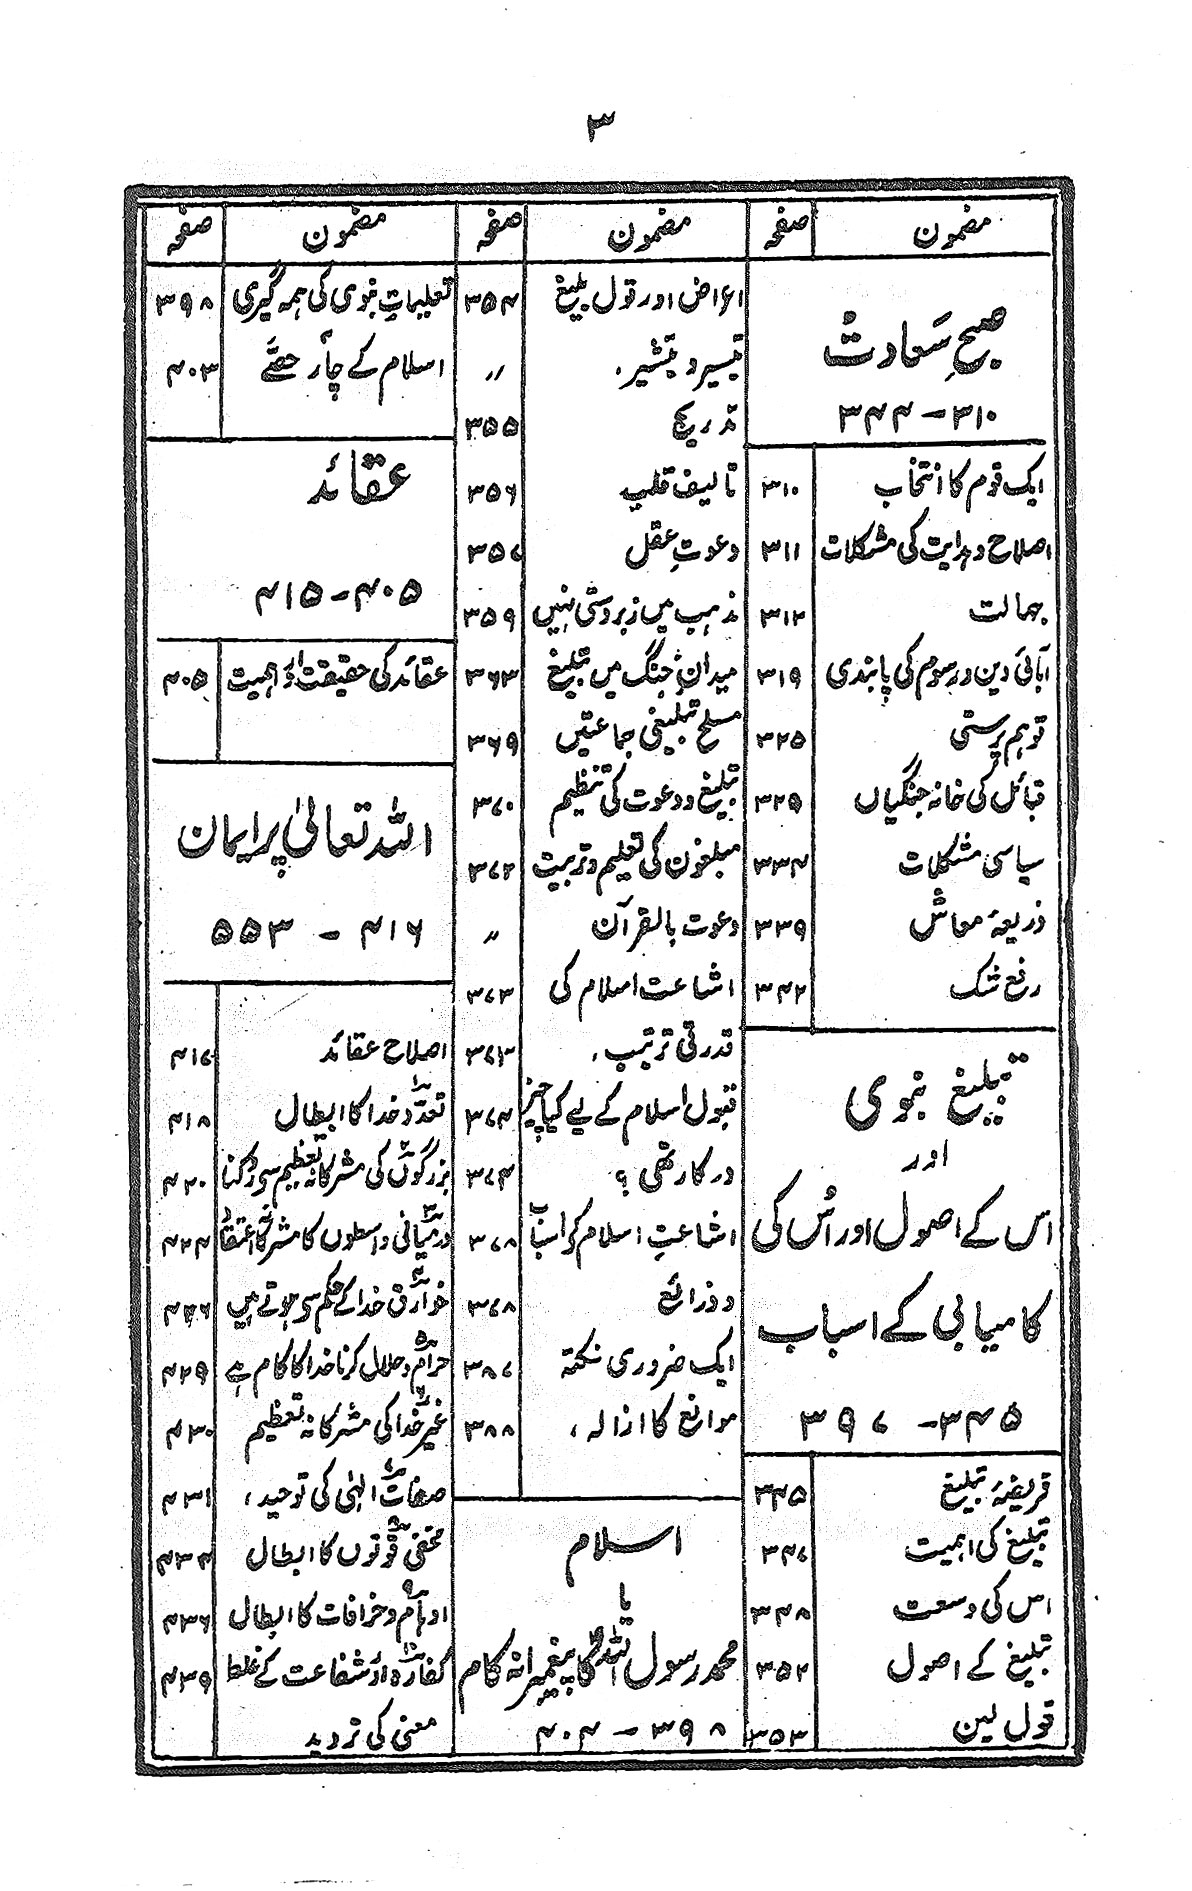 ۳
مضمون صفحہ
صبحِ سعادت
۳۱۰-۳۴۴
ایک قوم کا انتخاب ۳۱۰
اصلاح و ہدایت کی مشکلات ۳۱۱
جہالت ۳۱۲
آبائی دین و رسوم کی پابندی ۳۱۹
توہم پرستی ۳۲۵
قبائل کی خانہ جنگیاں ۳۲۹
سیاسی مشکلات ۳۳۴
ذریعۂ معاش ۳۳۹
رفع شک ۳۴۲
تبلیغ نبوی
اور
اس کے اصول اور اُس کی
کامیابی کے اسباب
۳۴۵-۳۹۷
فریضۂ تبلیغ ۳۴۵
تبلیغ کی اہمیت ۳۴۷
اس کی وسعت ۳۴۸
تبلیغ کے اصول ۳۵۲
قول لین ۳۵۳
مضمون صفحہ
اعراض اور قول بلیغ ۳۵۴
تیسیر و تبشیر. 〃
تدریج ۳۵۵
تالیف قلب ۳۵۶
دعوتِ عقل ۳۵۷
مذہب میں زبردستی نہیں ۳۵۹
میدانِ جنگ میں تبلیغ ۳۶۳
مسلح تبلیغی جماعتیں ۳۶۹
تبلیغ و دعوت کی تنظیم ۳۷۰
مبلغون کی تعلیم و تربیت ۳۷۲
دعوت بالقرآن 〃
اشاعت اسلام کی ۳۷۳
قدرتی ترتیب، ۳۷۳
قبول اسلام کے لیے کیا چیز ۳۷۴
درکار تھی؟ ۳۷۴
اشاعتِ اسلام کے اسباب ۳۷۸
و ذرائع ۳۷۸
ایک ضروری نکتہ ۳۸۷
موانع کا ازالہ، ۳۸۸
اسلام
یا
محمد رسول اللہ کا پیغمبرانہ کام
۳۹۸-۴۰۴
مضمون صفحہ
تعلیماتِ نبوی کی ہمہ گیری ۳۹۸
اسلام کے چار حصّے ۴۰۳
عقائد
۴۰۵-۴۱۵
عقائد کی حقیقت اور اہمیت ۴۰۵
اللہ تعالیٰ پر ایمان
۴۱۶-۵۵۳
اصلاح عقائد ۴۱۷
تعدّد خدا کا ابطال ۴۱۸
بزرگوں کی مشرکانہ تعظیم سے روکنا ۴۲۰
درمیانی واسطوں کا مشرکانہ اعتقاد ۴۲۴
خوارق خدا کے حکم سے ہوتے ہیں ۴۲۶
حرام و حلال کرنا خدا کا کام ہے ۴۲۹
غیر خدا کی مشرکانہ تعظیم ۴۳۰
صفات الہٰی کی توحید، ۴۳۱
مخفی قوتوں کا ابطال ۴۳۴
اوہام و خرافات کا ابطال ۴۳۶
کفارہ اور شفاعت کے غلط ۴۳۹
معنی کی تردید